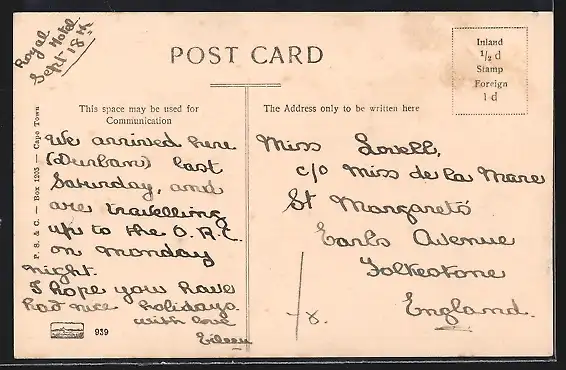 Royal
Hotel
Sept 18th
POST CARD
Inland
½ d
Stamp
Foreign
1 d
This space may be used for
Communication
The Address only to be written here
P. S. & C. — Box 1205 — Cape Town
We arrived here
(Durban) last
Saturday, and
are travelling
up to the O.R.C.
on Monday
night.
I hope you have
had nice holidays.
with love
Eileen
939
Miss Lovell,
c/o Miss de la Mare
St Margaret's
Earls Avenue
Folkestone
England.